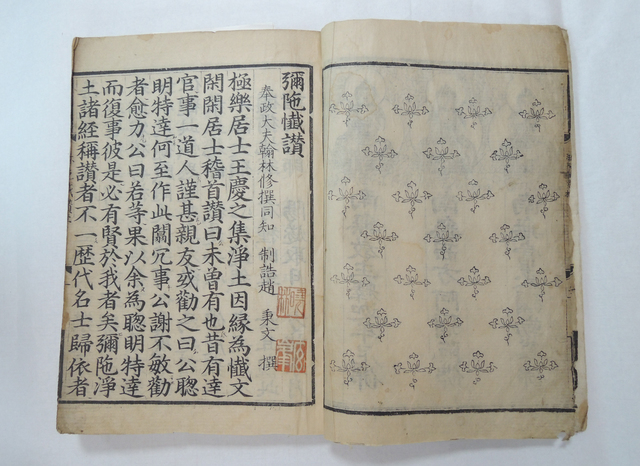 彌陁懴讃
奉政大夫翰林修撰同知 制誥趙 秉文 撰
極樂居士王慶之集淨土因縁為懴文
閑閑居士稽首讃曰未曾有也昔有達
官事一道人謹甚親友或勸之曰公聦
明特達何至作此闒冗事公謝不敏勸
者愈力公曰若等果以余為聦明特達
而復事彼是必有賢於我者矣彌陁淨
土諸経稱讃者不一歴代名士歸依者